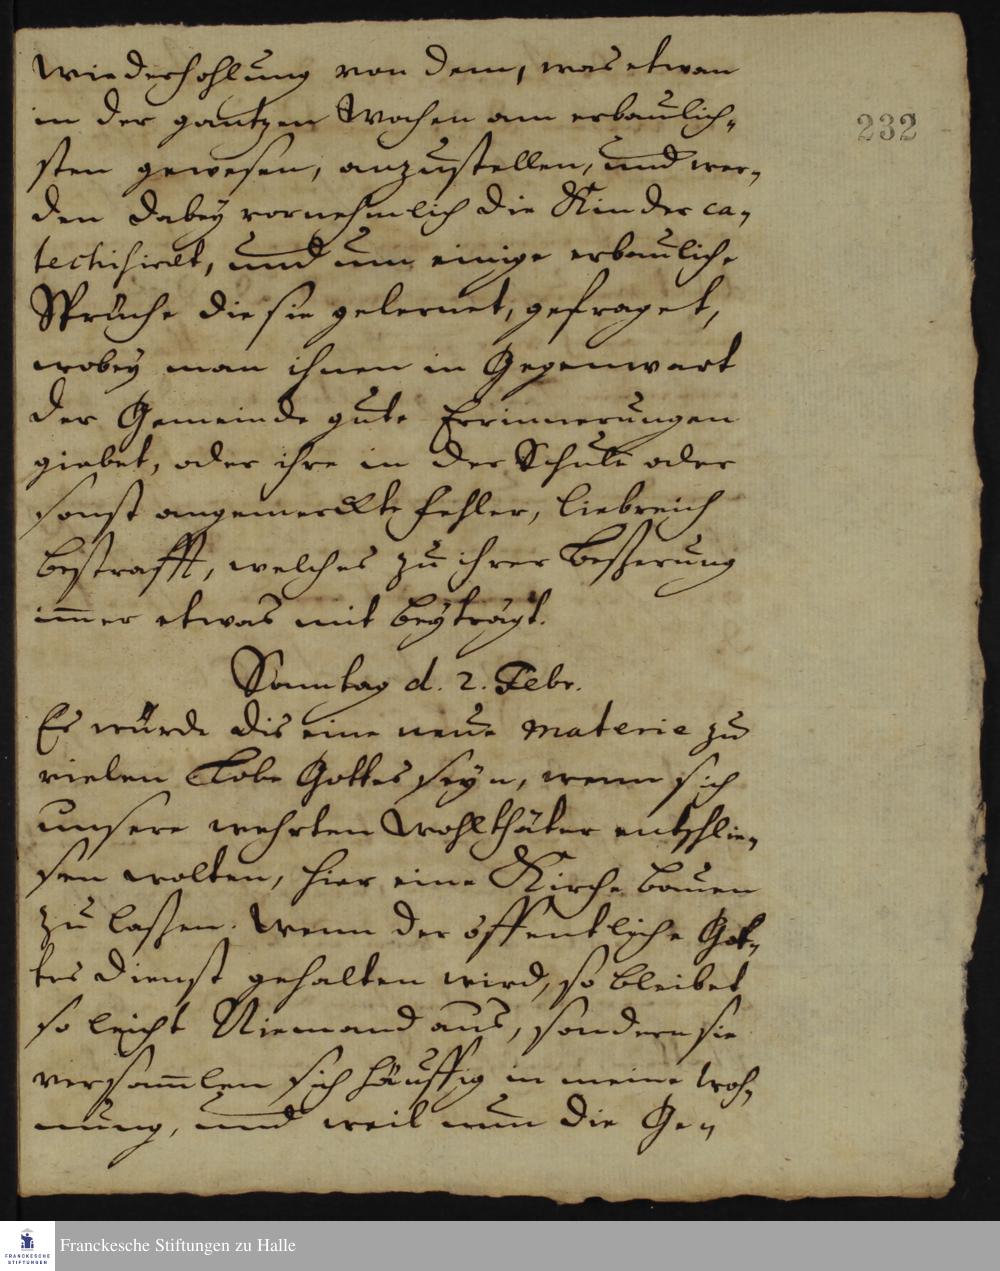 Wiederhohlung von dem, was etwan
in der gantzen Wochen am erbaulich-
232
sten gewesen, anzustellen, und wer-
den dabey vornehmlich die Kinder ca-
techisiret, und um einige erbauliche
Sprüche die sie gelernet, gefraget,
wobey man ihnen in Gegenwart
der Gemeinde gute Errinnerungen
giebet, oder ihre in der Schule oder
sonst angemerckte Fehler, liebreich
bestrafft, welches zu ihrer Beßerung
im̅er etwas mit beyträgt.
Sonntag d. 2. Febr.
Es würde dis eine neue materie zu
vielen Lobe Gottes seyn, wenn sich
unsere wehrten Wohlthäter entschlie-
sen wolten, hier eine Kirche bauen
zu laßen. Wenn der öffentliche Got-
tes dienst gehalten wird, so bleibet
so leicht Niemand aus, sondern sie
versam̅len sich häuffig in meine Woh-
nung, und weil nun die Ge-
FRANCKESCHE
STIFTUNGEN
Franckesche Stiftungen zu Halle